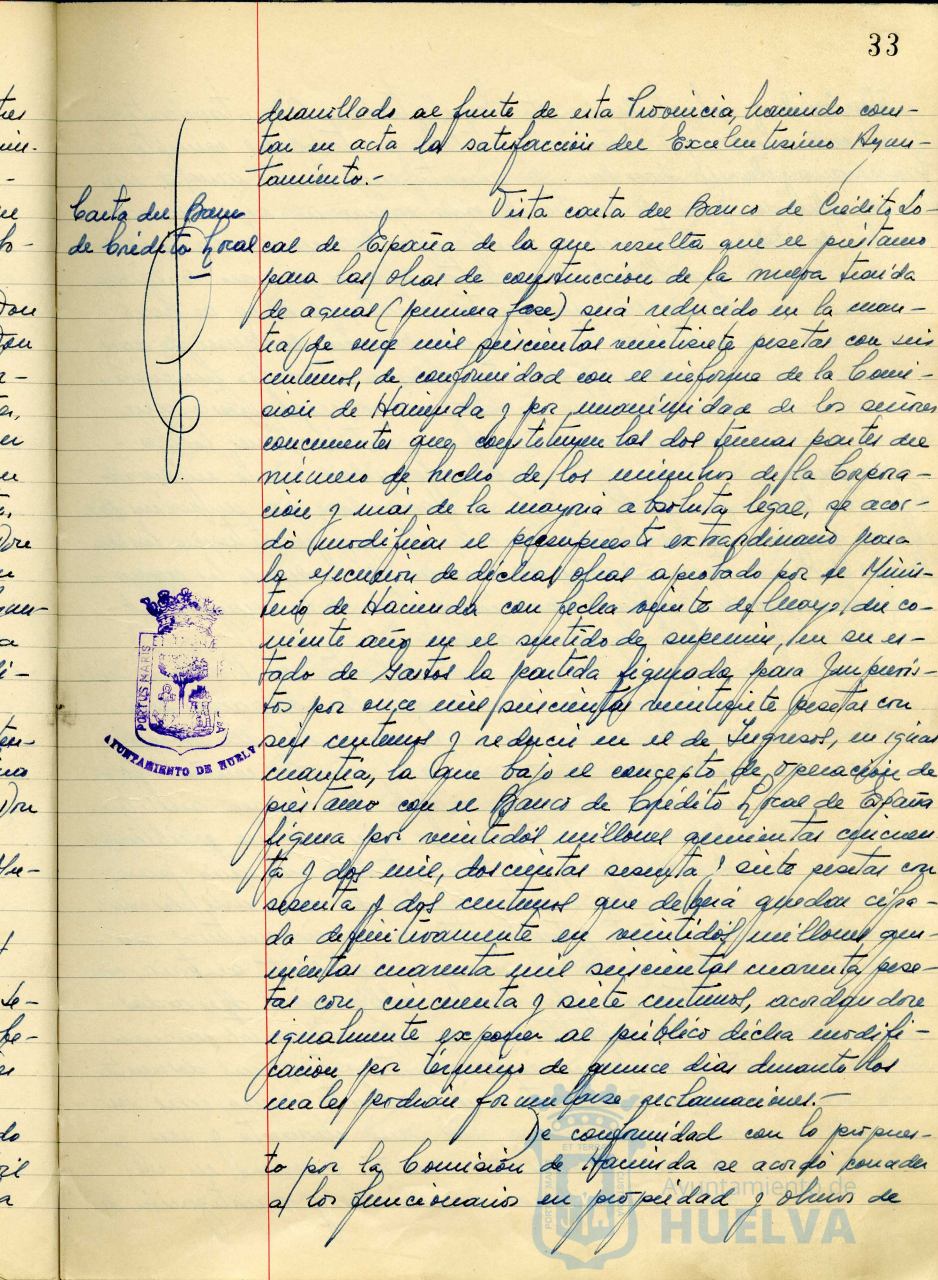 33
desarrollado al frente de esta Provincia, haciendo cons-
tar en acta la satisfacción del Excelentísimo Ayun-
tamiento.-
Carta del Banco
de Crédito Local
Vista carta del Banco de Crédito Lo-
cal de España de la que resulta que el préstamo
para las obras de construcción de la nueva traida
de aguas (primera fase) será reducido en la cuan-
tia de once mil seiscientas veintisiete pesetas con seis
centimos, de conformidad con el informe de la Comi-
sión de Hacienda y por unanimidad de los señores
concurrentes que constituyen las dos terceras partes del
número de hecho de los miembros de la Corpora-
ción y más de la mayoria absoluta legal, se acor-
dó modificar el presupuesto extraordinario para
la ejecución de dichas obras aprobado por el Minis-
terio de Hacienda con fecha veinte de Mayo del co-
rriente año en el sentido de suprimir, en su es-
tado de Gastos la partida figurada para Imprevis-
tos por once mil seiscientas veintisiete pesetas con
seis centimos y reducir en el de Ingresos, en igual
cuantia, la que bajo el concepto de operación de
préstamo con el Banco de Crédito Local de España
figura por veintidós millones quinientas cincuen
ta y dos mil, doscientas sesenta y siete pesetas con
sesenta y dos centimos que deberá quedar cifra-
da definitivamente en veintidós millones qui-
nientas cuarenta mil seiscientas cuarenta pese-
tas con, cincuenta y siete centimos, acordandose
igualmente exponer al público dicha modifi-
cación por término de quince dias durante los
cuales podrán formularse reclamaciones.-
De conformidad con lo propues-
to por la Comisión de Hacienda se acordó conceder
a los funcionarios en propiedad y obreros de
PORTUS MARIS
AYUNTAMIENTO DE HUELVA
Ayuntamiento de
HUELVA